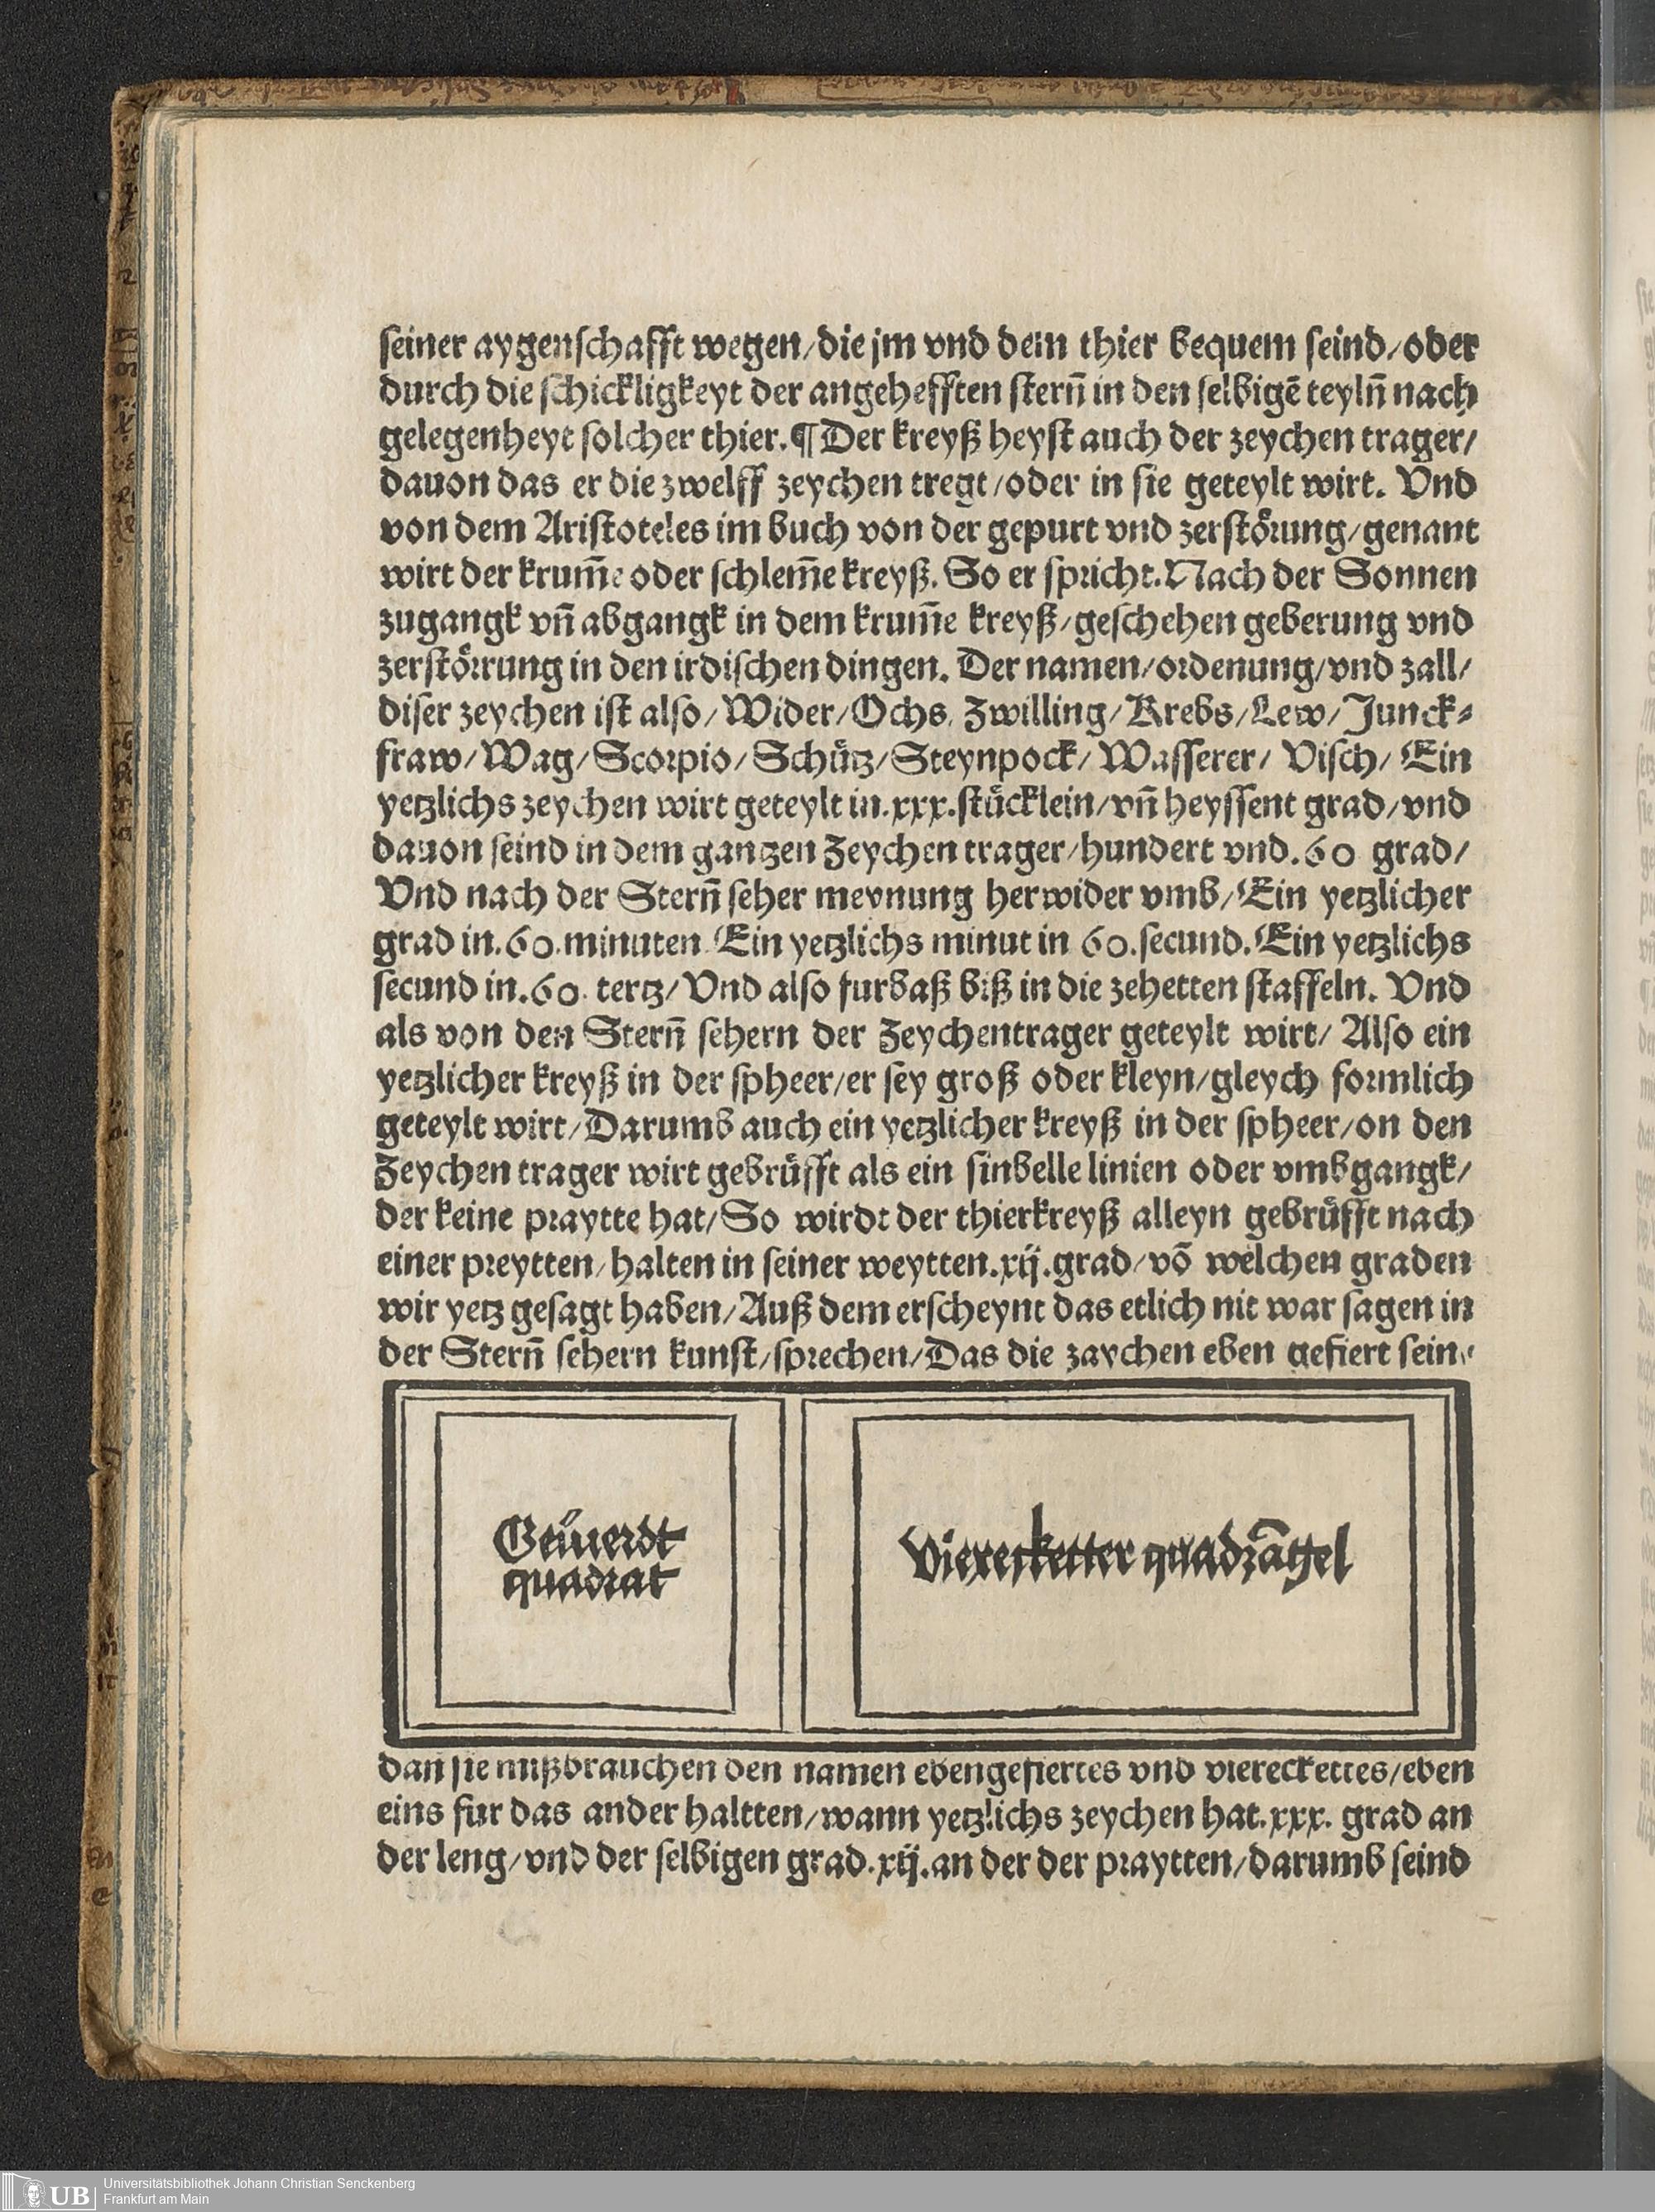 seiner aygenschafft wegen/die jm vnd dem thier bequem seind/oder
durch die schickligkeyt der angehefften stern̄ in den selbigē teyln̄ nach
gelegenheyt solcher thier.¶Der kreyß heyst auch der zeychen trager/
dauon das er die zwelff zeychen tregt/oder in sie geteylt wirt. Vnd
von dem Aristoteles im buch von der gepurt vnd zerstörung/genant
wirt der krum̄e oder schlem̄e kreyß. So er spricht. Nach der Sonnen
zugangk vn̄ abgangk in dem krum̄e kreyß/geschehen geberung vnd
zerstörrung in den irdischen dingen. Der namen/ordenung/vnd zall/
diser zeychen ist also/Wider/Ochs, Zwilling/Krebs/Lew/Junck⸗
fraw/Wag/Scorpio/Schütz/Steynpock/Wasserer/ Visch/ Ein
yetzlichs zeychen wirt geteylt in.xxx.stücklein/vn̄ heyssent grad/vnd
dauon seind in dem gantzen Zeychen trager/hundert vnd.60 grad/
Vnd nach der Stern̄ seher meynung herwider vmb/Ein yetzlicher
grad in.60.minuten. Ein yetzlichs minut in 60.secund.Ein yetzlichs
secund in.60. tertz/Vnd also furbaß biß in die zehetten staffeln. Vnd
als von den Stern̄ sehern der Zeychentrager geteylt wirt/ Also ein
yetzlicher kreyß in der spheer/er sey groß oder kleyn/gleych formlich
geteylt wirt/Darumb auch ein yetzlicher kreyß in der spheer/on den
Zeychen trager wirt gebrüfft als ein sinbelle linien oder vmbgangk/
der keine praytte hat/So wirdt der thierkreyß alleyn gebrüfft nach
einer preytten/halten in seiner weytten.xij.grad/vō welchen graden
wir yetz gesagt haben/Auß dem erscheynt das etlich nit war sagen in
der Stern̄ sehern kunst/sprechen/Das die zaychen eben gefiert sein/
Geuierdt
quadrat
Vierecketter quadrāgel
dan sie mißbrauchen den namen ebengefiertes vnd viereckettes/eben
eins fur das ander haltten/wann yetzlichs zeychen hat.xxx. grad an
der leng/vnd der selbigen grad.xij.an der der praytten/darumb seind
Universitätsbibliothek Johann Christian Senckenberg
Frankfurt am Main
UB